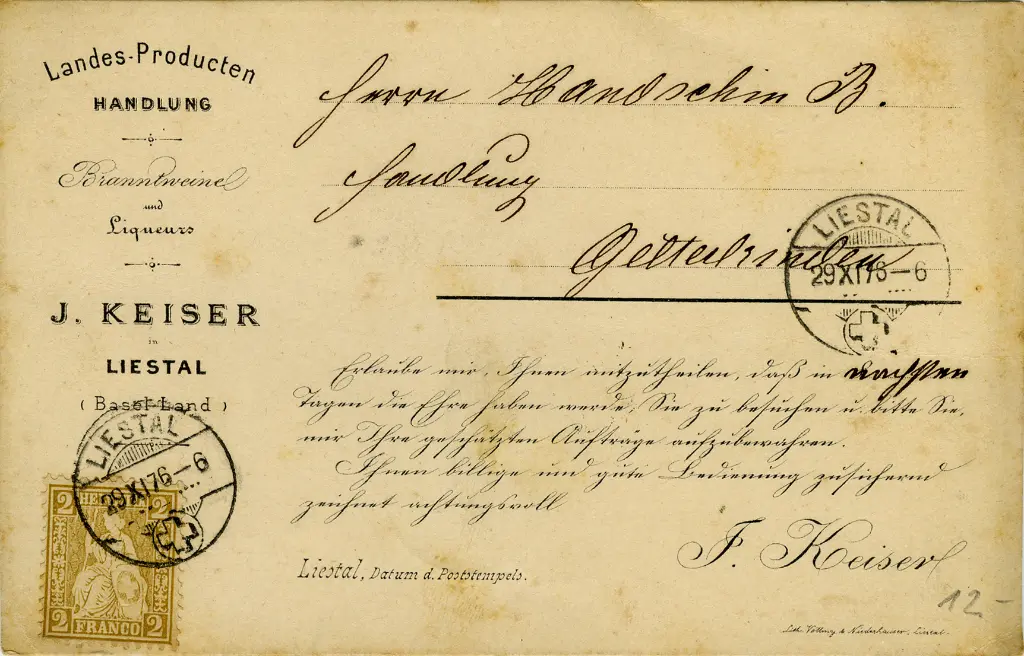 Landes-Producten
HANDLUNG
Branntweine
und
Liqueurs
J. KEISER
in
LIESTAL
(Basel-Land)
Herrn Handschin B.
Handlung
Gelterkinden
LIESTAL
29 XI 76 — 6
Erlaube mir, Ihnen mitzutheilen, daß in nächsten
Tagen die Ehre haben werde, Sie zu besuchen u. bitte Sie,
mir Ihre geschätzten Aufträge aufzubewahren.
Ihnen billige und gute Bedienung zusichernd
zeichnet achtungsvoll
J. Keiser
Liestal, Datum d. Poststempels.
LIESTAL
29 XI 76 — 6
2 HE 2
2 FRANCO 2
12.-